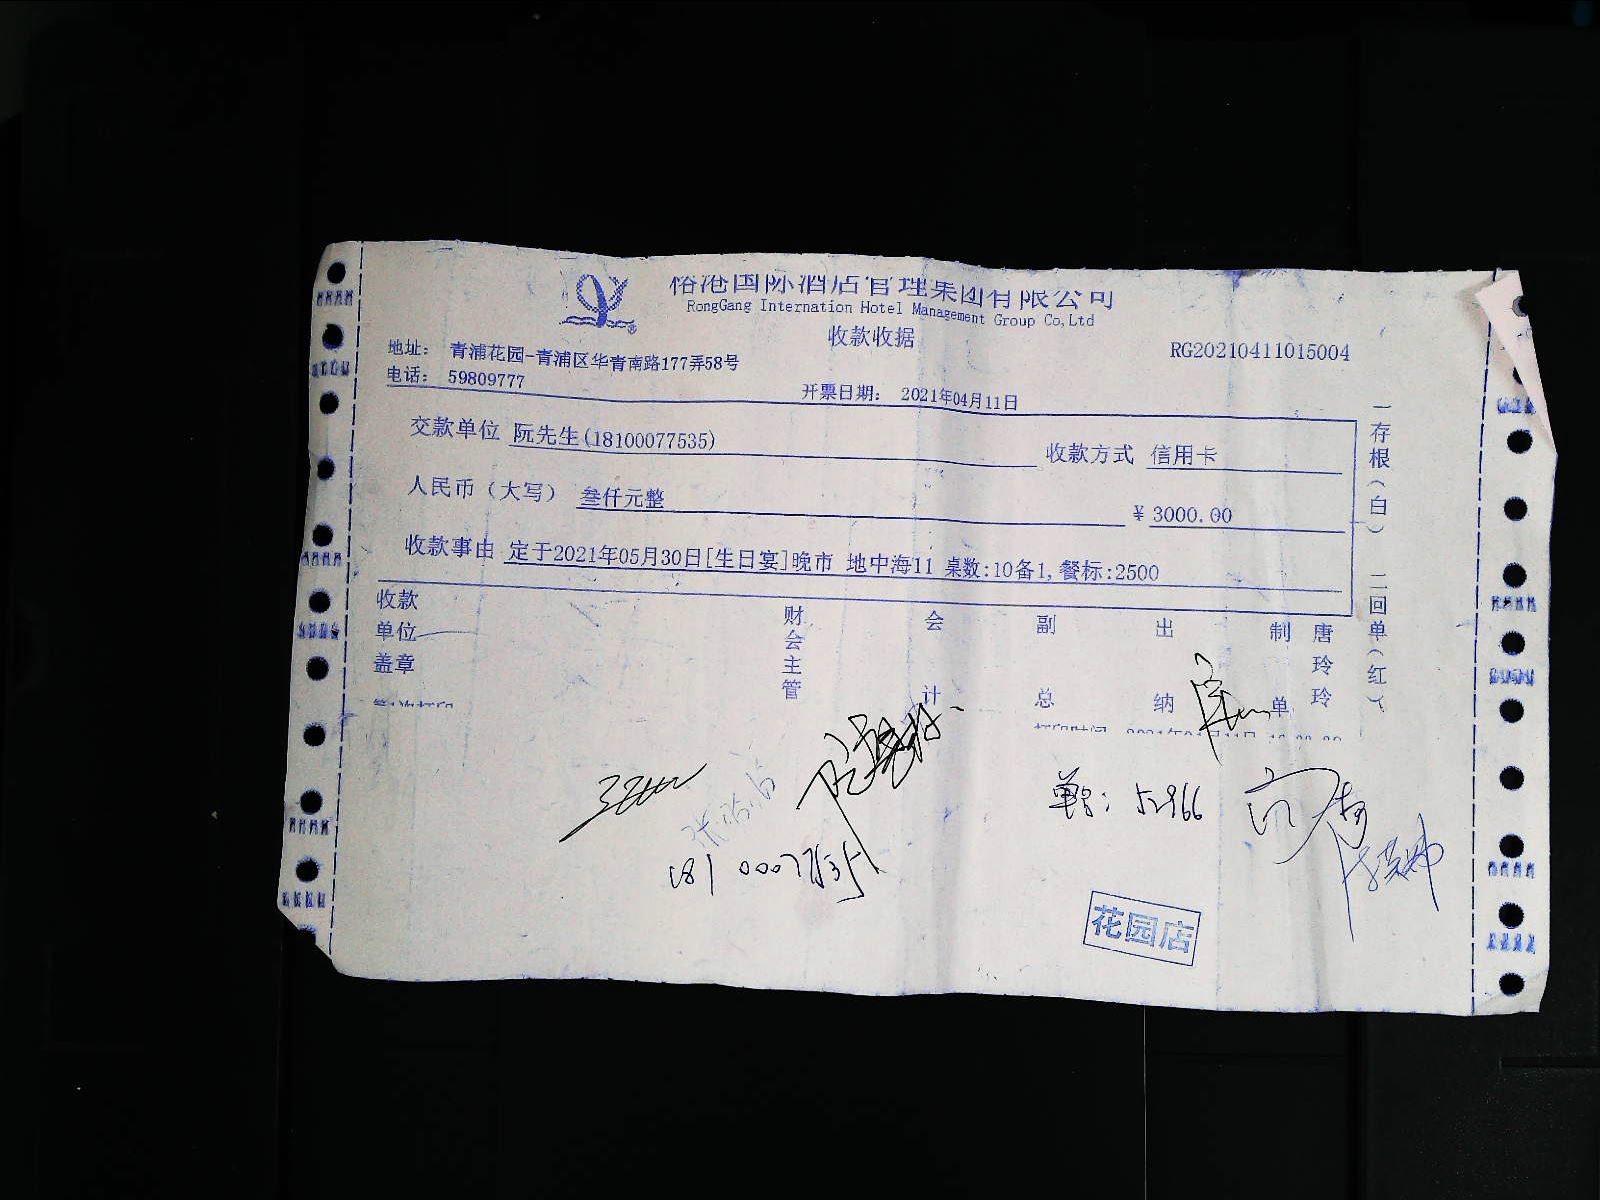 国际酒店管理集团有限公司
RongGang Internation Hotel Management Group Co,Ltd
收款收据
地址： 青浦花园-青浦区华青南路177弄58号
RG20210411015004
电话： 59809777
开票日期： 2021年04月11日
交款单位 阮先生(18100077535)
收款方式 信用卡
人民币（大写） 叁仟元整
¥ 3000.00
收款事由 定于2021年05月30日[生日宴]晚市 地中海11 桌数:10备1,餐标:2500
一存根(白)
二回单(红)
收款单位盖章
财会主管
会计
副总
出纳
制单
唐玲玲
单号: 52966
花园店